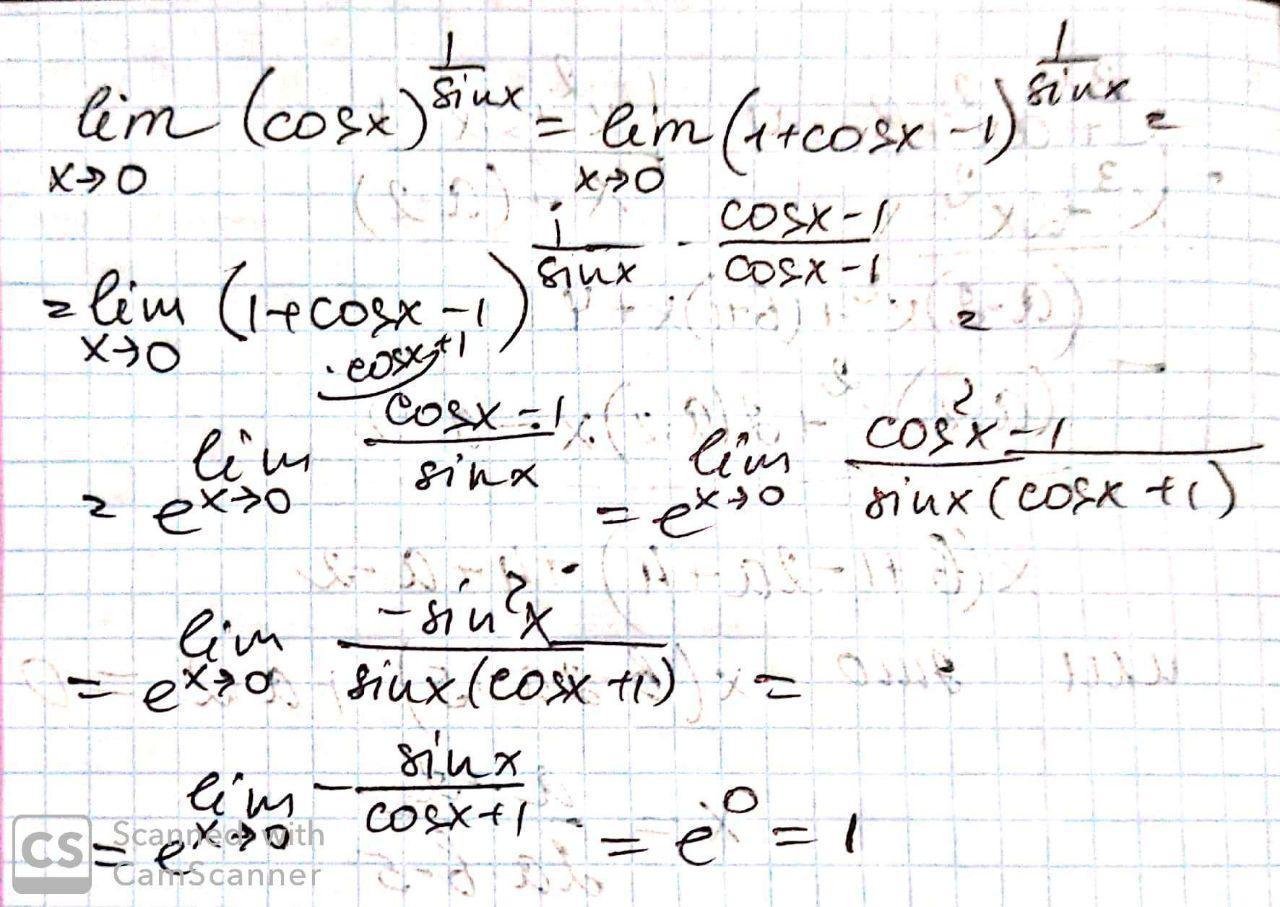 lim x→0 (cosx)^(1/sinx) = lim x→0 (1+cosx-1)^(1/sinx) =
= lim x→0 (1+cosx-1)^(1/sinx · (cosx-1)/(cosx-1)) =
·cosx+1
= e^(lim x→0 (cosx-1)/sinx) = e^(lim x→0 (cos²x-1)/(sinx(cosx+1)))
= e^(lim x→0 (-sin²x)/(sinx(cosx+1))) =
= e^(lim x→0 -sinx/(cosx+1)) = e^0 = 1
CS Scanned with
CamScanner